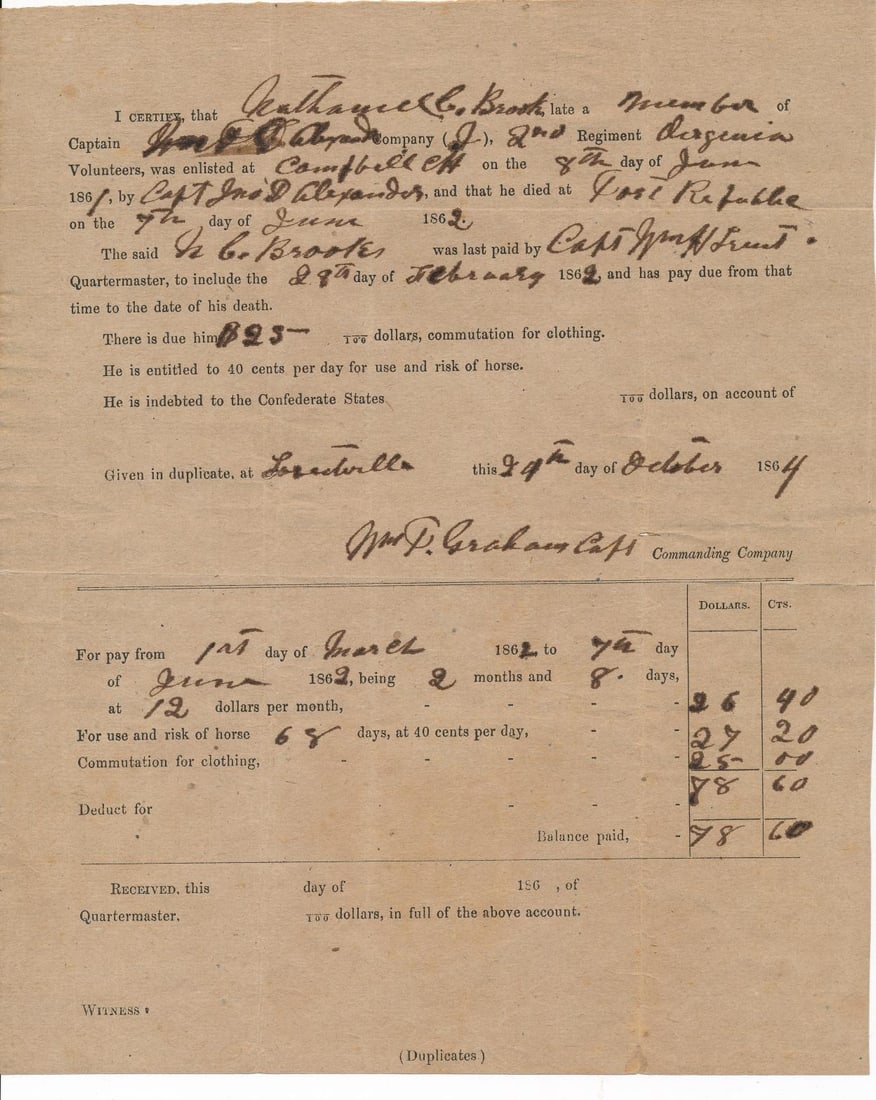 I CERTIFY, that Nathaniel C. Brook, late a member of
Captain Jno D Alexander Company (I), 2nd Regiment Virginia
Volunteers, was enlisted at Campbell CH on the 8th day of June
1861, by Capt Jno D Alexander, and that he died at Port Republic
on the 7th day of June 1862.
The said N C. Brooks was last paid by Capt Wm H
Quartermaster, to include the 28th day of February 1862 and has pay due from that
time to the date of his death.
There is due him $25— 100 dollars, commutation for clothing.
He is entitled to 40 cents per day for use and risk of horse.
He is indebted to the Confederate States 100 dollars, on account of
Given in duplicate, at this 29th day of October 1864
Wm F. Graham Capt Commanding Company
DOLLARS. CTS.
For pay from 1st day of March 1862 to 7th day
of June 1862, being 2 months and 8. days,
at 12 dollars per month, - - - - 26 40
For use and risk of horse 68 days, at 40 cents per day, - - 27 20
Commutation for clothing, - - - - - 25 00
78 60
Deduct for - - -
Balance paid, - 78 60
RECEIVED, this day of 186 , of
Quartermaster, 100 dollars, in full of the above account.
WITNESS:
(Duplicates)